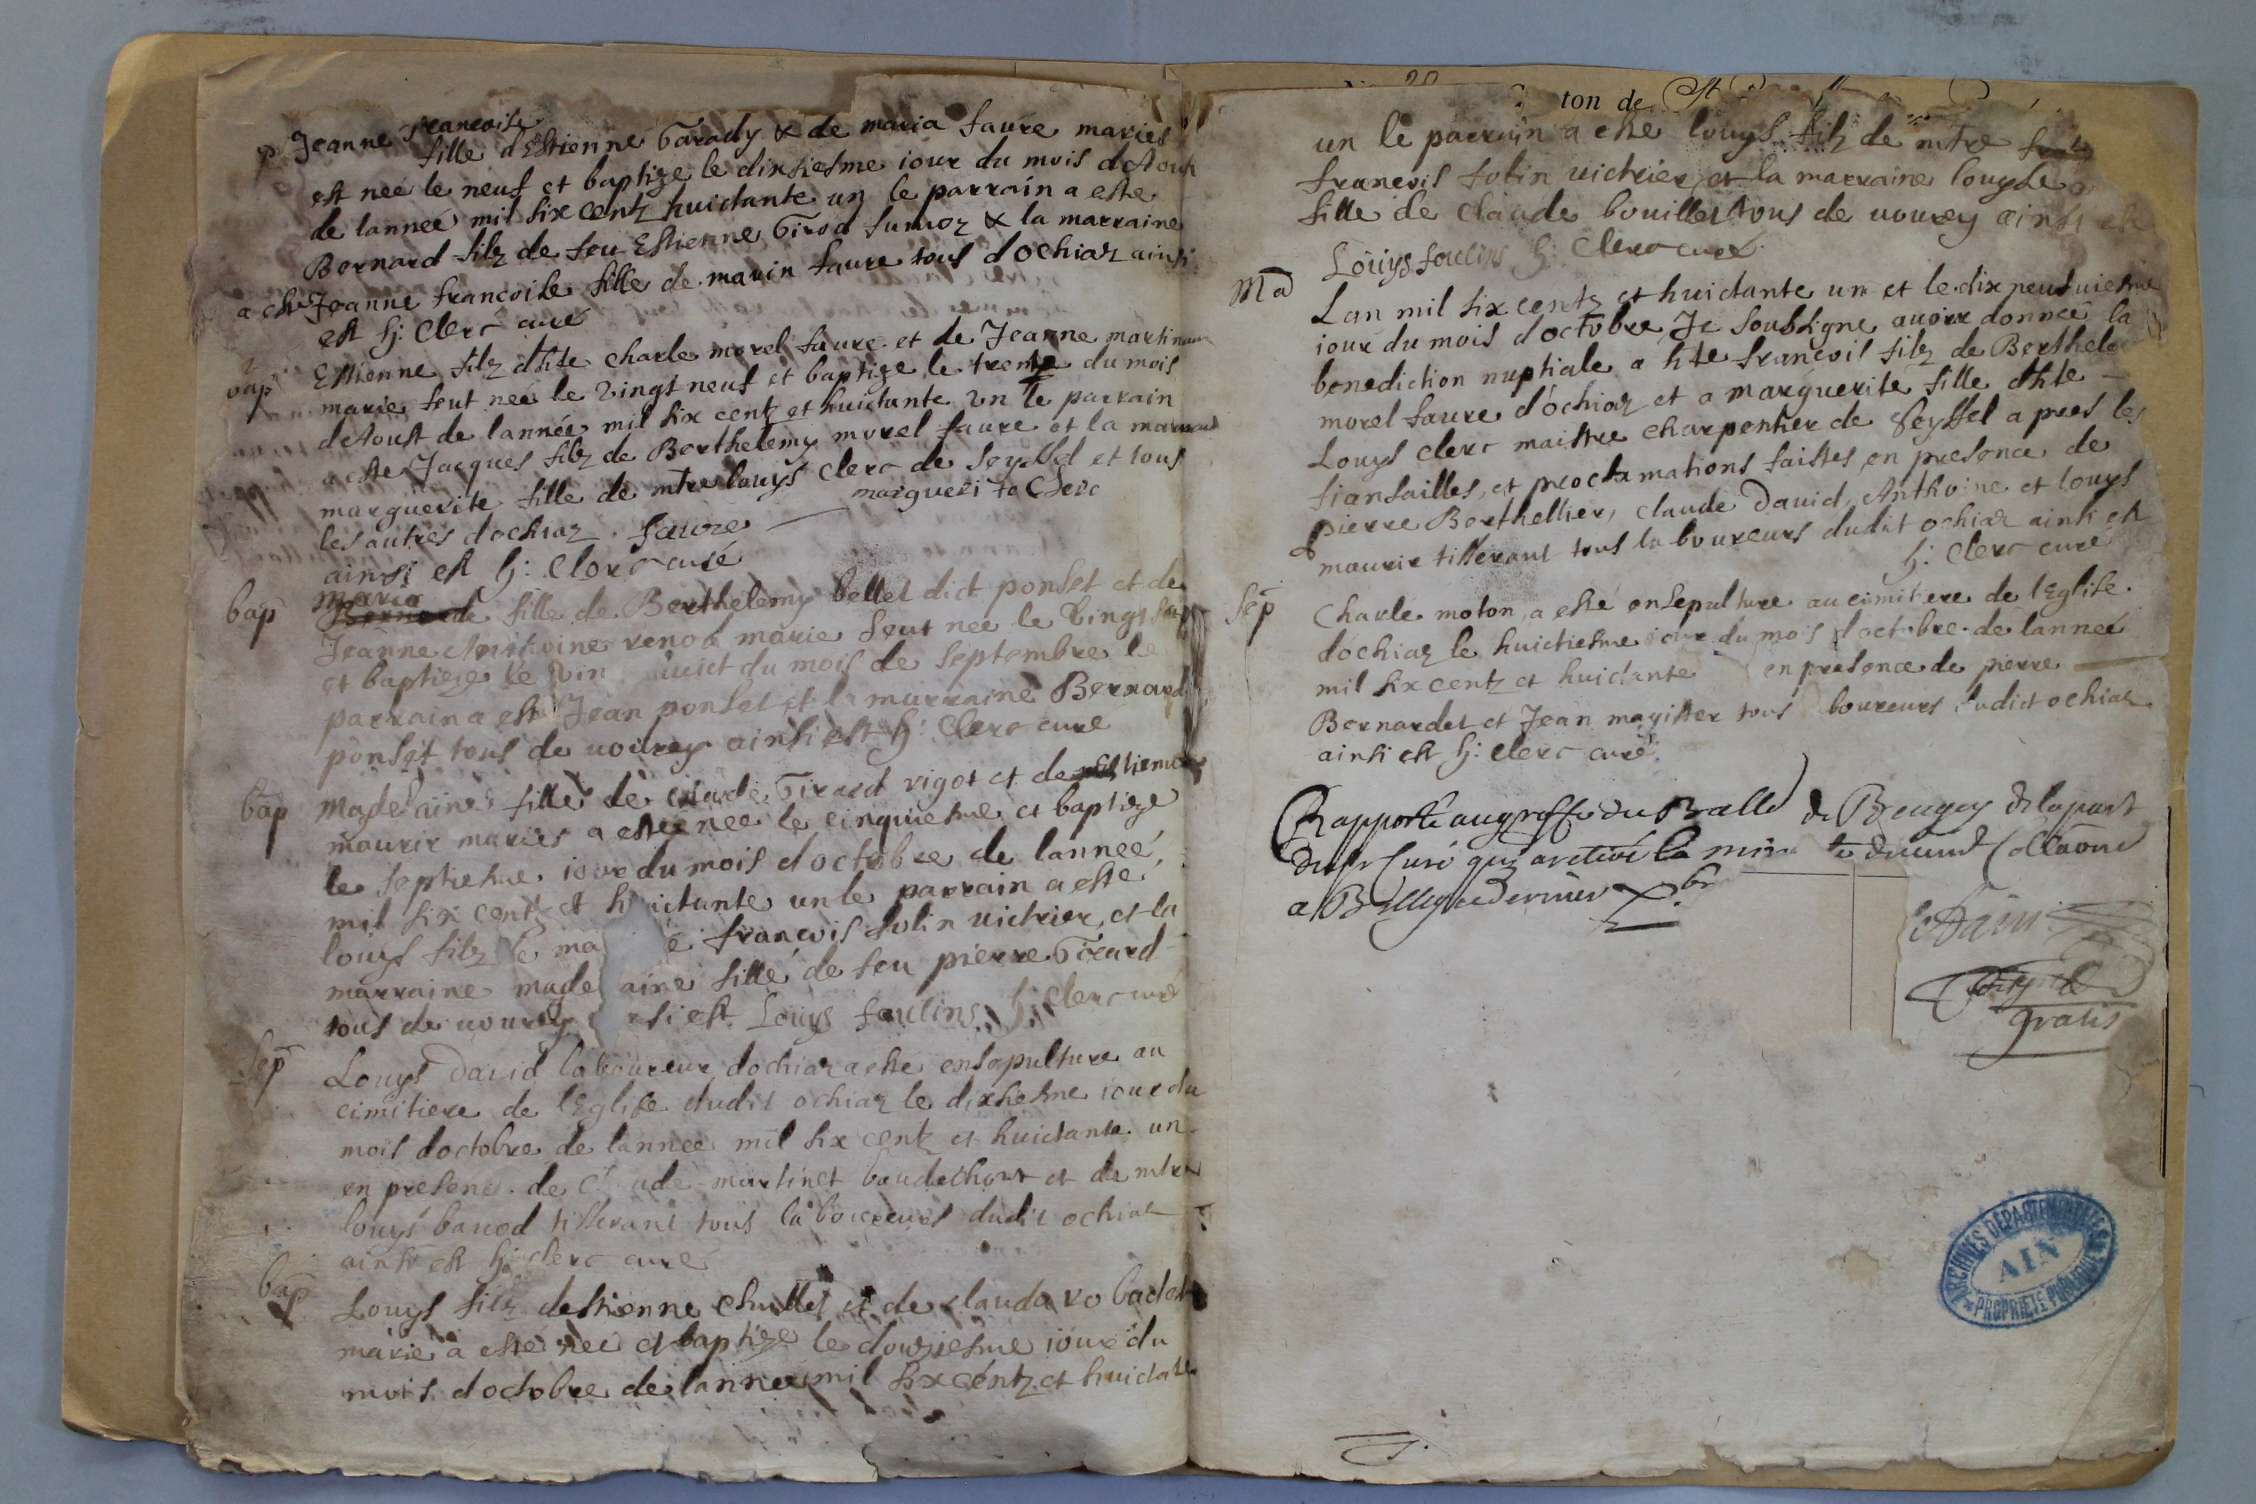 Jeanne francoise
fille dEstienne Girady & de maria faure mariés
est nee le neuf et baptize le dixiesme iour du mois dAoust
de lanneé mil six centz huictante un le parrain a este
Bernard filz de feu Estienne Girod & la marraine
a este Jeanne francoise fille de marin faure tous dochiaz ainsi
est h: Clerc curé
bap
Estienne filz dhte charle morel faure et de Jeanne
marie feut neé le vingt neuf et baptize le trente du mois
dAoust de lanneé mil six centz et huictante un le parrain
a este Jacques filz de Berthelemy morel faure et la
marguerite fille de mtre louys clerc de seyssel et tous
les autres dochiaz . faure margueri te Clerc
ainsi est h: Clerc curé
maria
bap
fille de Berthelemy bellet dict ponset et de
Jeanne Anthoine marie feut nee le vingt
et baptize le vin huict du mois de septembre le
parrain a este Jean ponset et la marraine Bernard
ponset tous de vourey ainsi est h: Clerc cure
bap
Magdelaine fille de claude Girard rigot et de
maurir mariés a esteé neé le cinquiesme et baptize
le septiesme iour du mois doctobre de lanneé
mil six centz et huictante un le parrain a este
louys filz francois victrier, et la
marraine magdelaine fille de feu pierre Girard
tous de vourey ainsi est. Louys h: Clerc curé
sep
Louys David laboureur dochiaz a este ensepulture au
cimitiere de lEglise dudit ochiaz le dixiesme iour du
mois doctobre de lanneé mil six centz et huictante un
en presence de Claude martinet et de mtre
louys tisserant tous laboureurs dudit ochiaz
ainsi est h: clerc curé
bap
Louys filz destienne et de clauda
marié a este neé et baptize le douziesme iour du
mois doctobre de lanneé mil six centz et huictante
ton de St
un le parrain a este louys filz de mtre
francois victrier et la marraine louyse
fille de claude bouillet tous de vourey ainsi est
Louys h: Clerc curé
Ma
Lan mil six centz et huictante un et le dix neufuiesme
iour du mois doctobre Je soubsigne auoir donneé la
benediction nuptiale a hte francois filz de Berthelemy
morel faure dochiaz et a marguerite fille dhte
Louys clerc maistre charpentier de seyssel apres les
fiansailles, et proclamations faistes en presence de
pierre Berthellier, claude David, Anthoine et louys
maurir tisserant tous laboureurs dudit ochiaz ainsi est
h: Clerc curé
Sep
Charle moton, a esté ensepulture au cimitiere de lEglise
dochiaz le huictiesme iour du mois doctobre de lanneé
mil six centz et huictante en presence de pierre
Bernardet et Jean magister tous laboureurs dudict ochiaz
ainsi est h: clerc curé
Rapporté au greffe du Balle de Beugey de la part
dudit sr Curé qui a retiré la
a Belley ce dernier Xbr
gratis
ARCHIVES DEPARTEMENTALES
AIN
PROPRIETE PUBLIQUE